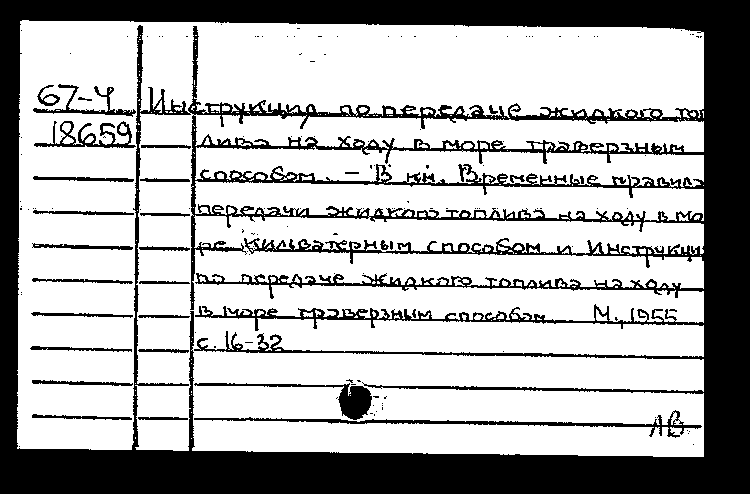 67-4 Инструкция по передаче жидкого топ
18659 лива на ходу в море траверзным
способом. – В кн. Временные правила
передачи жидкого топлива на ходу в мо
ре кильватерным способом и Инструкция
по передаче жидкого топлива на ходу
в море траверзным способом. М., 1955
с. 16-32
АВ